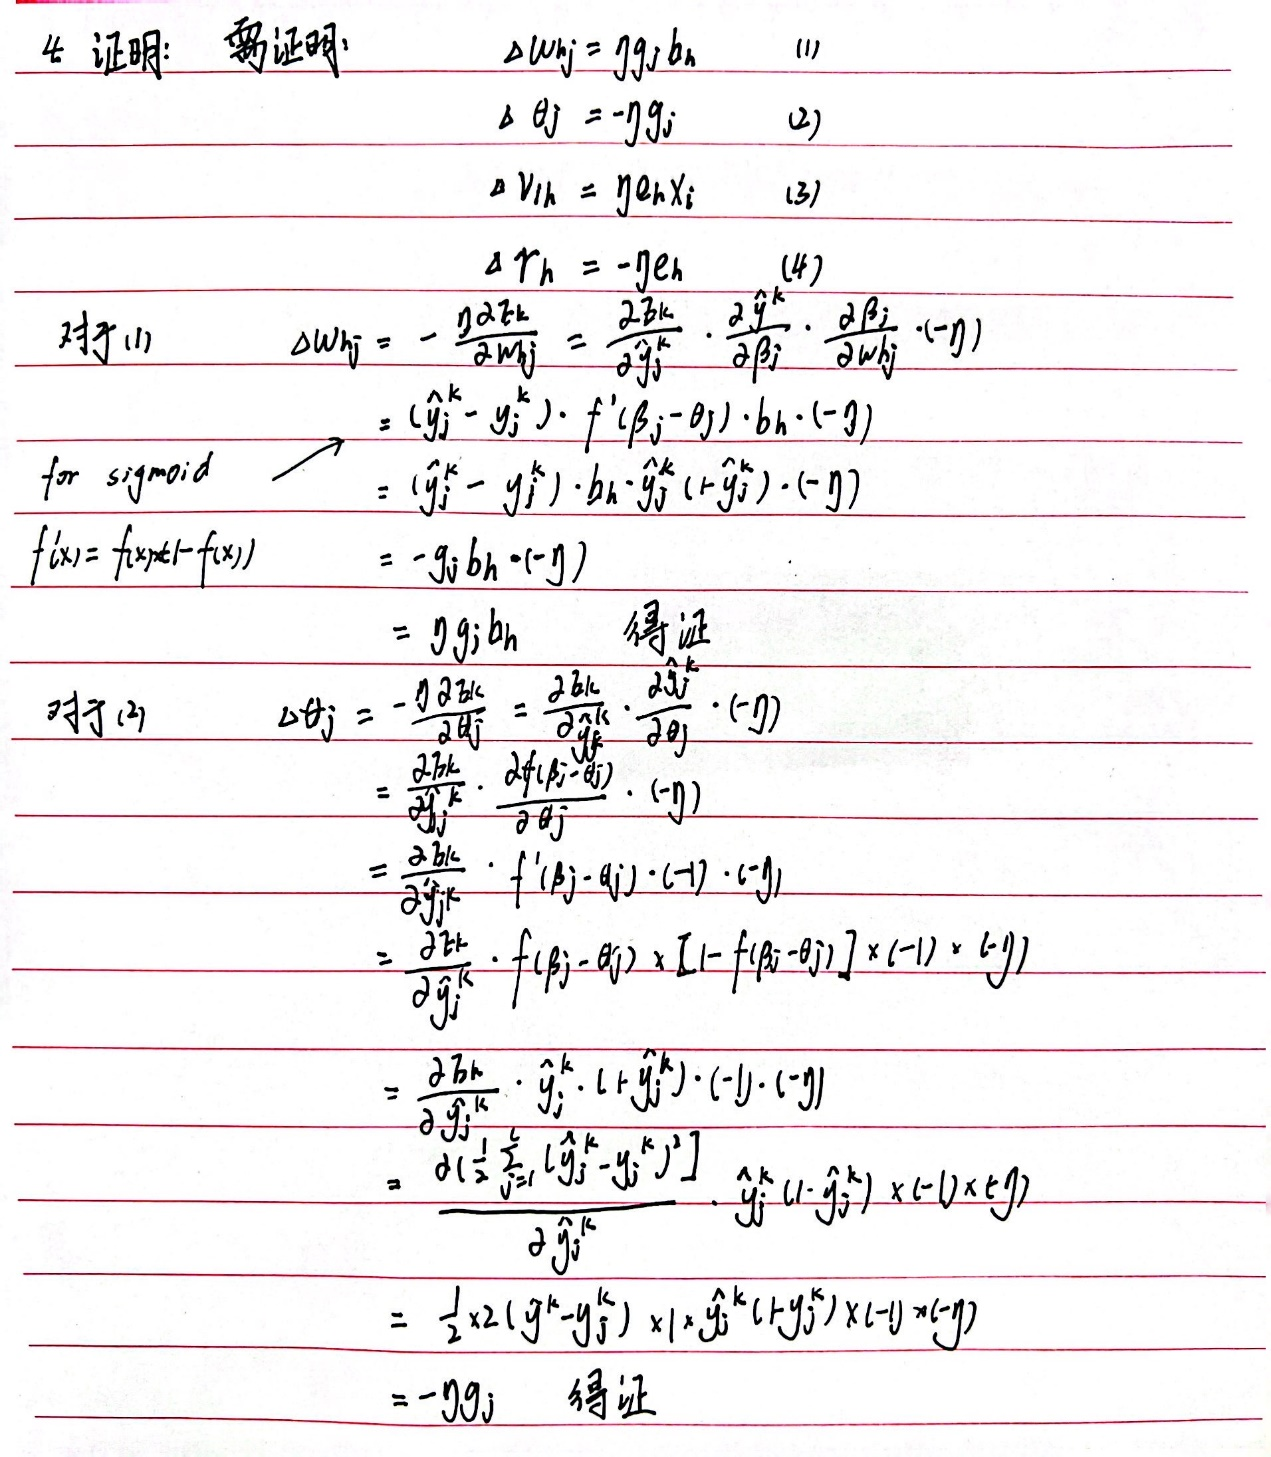 4 证明: 需证明: Δwhj = ηgjbh (1)
Δθj = -ηgj (2)
ΔVih = ηehxi (3)
Δγh = -ηeh (4)
对于(1) Δwhj = - η∂Ek/∂whj = ∂Ek/∂ŷj^k · ∂ŷ^k/∂βj · ∂βj/∂whj · (-η)
= (ŷj^k - yj^k) · f'(βj - θj) · bh · (-η)
for sigmoid → = (ŷj^k - yj^k) · bh · ŷj^k (1-ŷj^k) · (-η)
f'(x) = f(x)×(1-f(x)) = -gjbh · (-η)
= ηgjbh 得证
对于(2) Δθj = -η∂Ek/∂θj = ∂Ek/∂ŷj^k · ∂ŷj^k/∂θj · (-η)
= ∂Ek/∂ŷj^k · ∂f(βj-θj)/∂θj · (-η)
= ∂Ek/∂ŷj^k · f'(βj - θj) · (-1) · (-η)
= ∂Ek/∂ŷj^k · f(βj - θj) × [1 - f(βj - θj)] × (-1) × (-η)
= ∂Ek/∂ŷj^k · ŷj^k · (1-ŷj^k) · (-1) · (-η)
= ∂(½ Σ_{j=1}^{l} (ŷj^k - yj^k)²]/∂ŷj^k · ŷj^k (1-ŷj^k) × (-1) × (-η)
= ½ × 2 (ŷ^k - yj^k) × 1 × ŷj^k (1-yj^k) × (-1) × (-η)
= -ηgj 得证